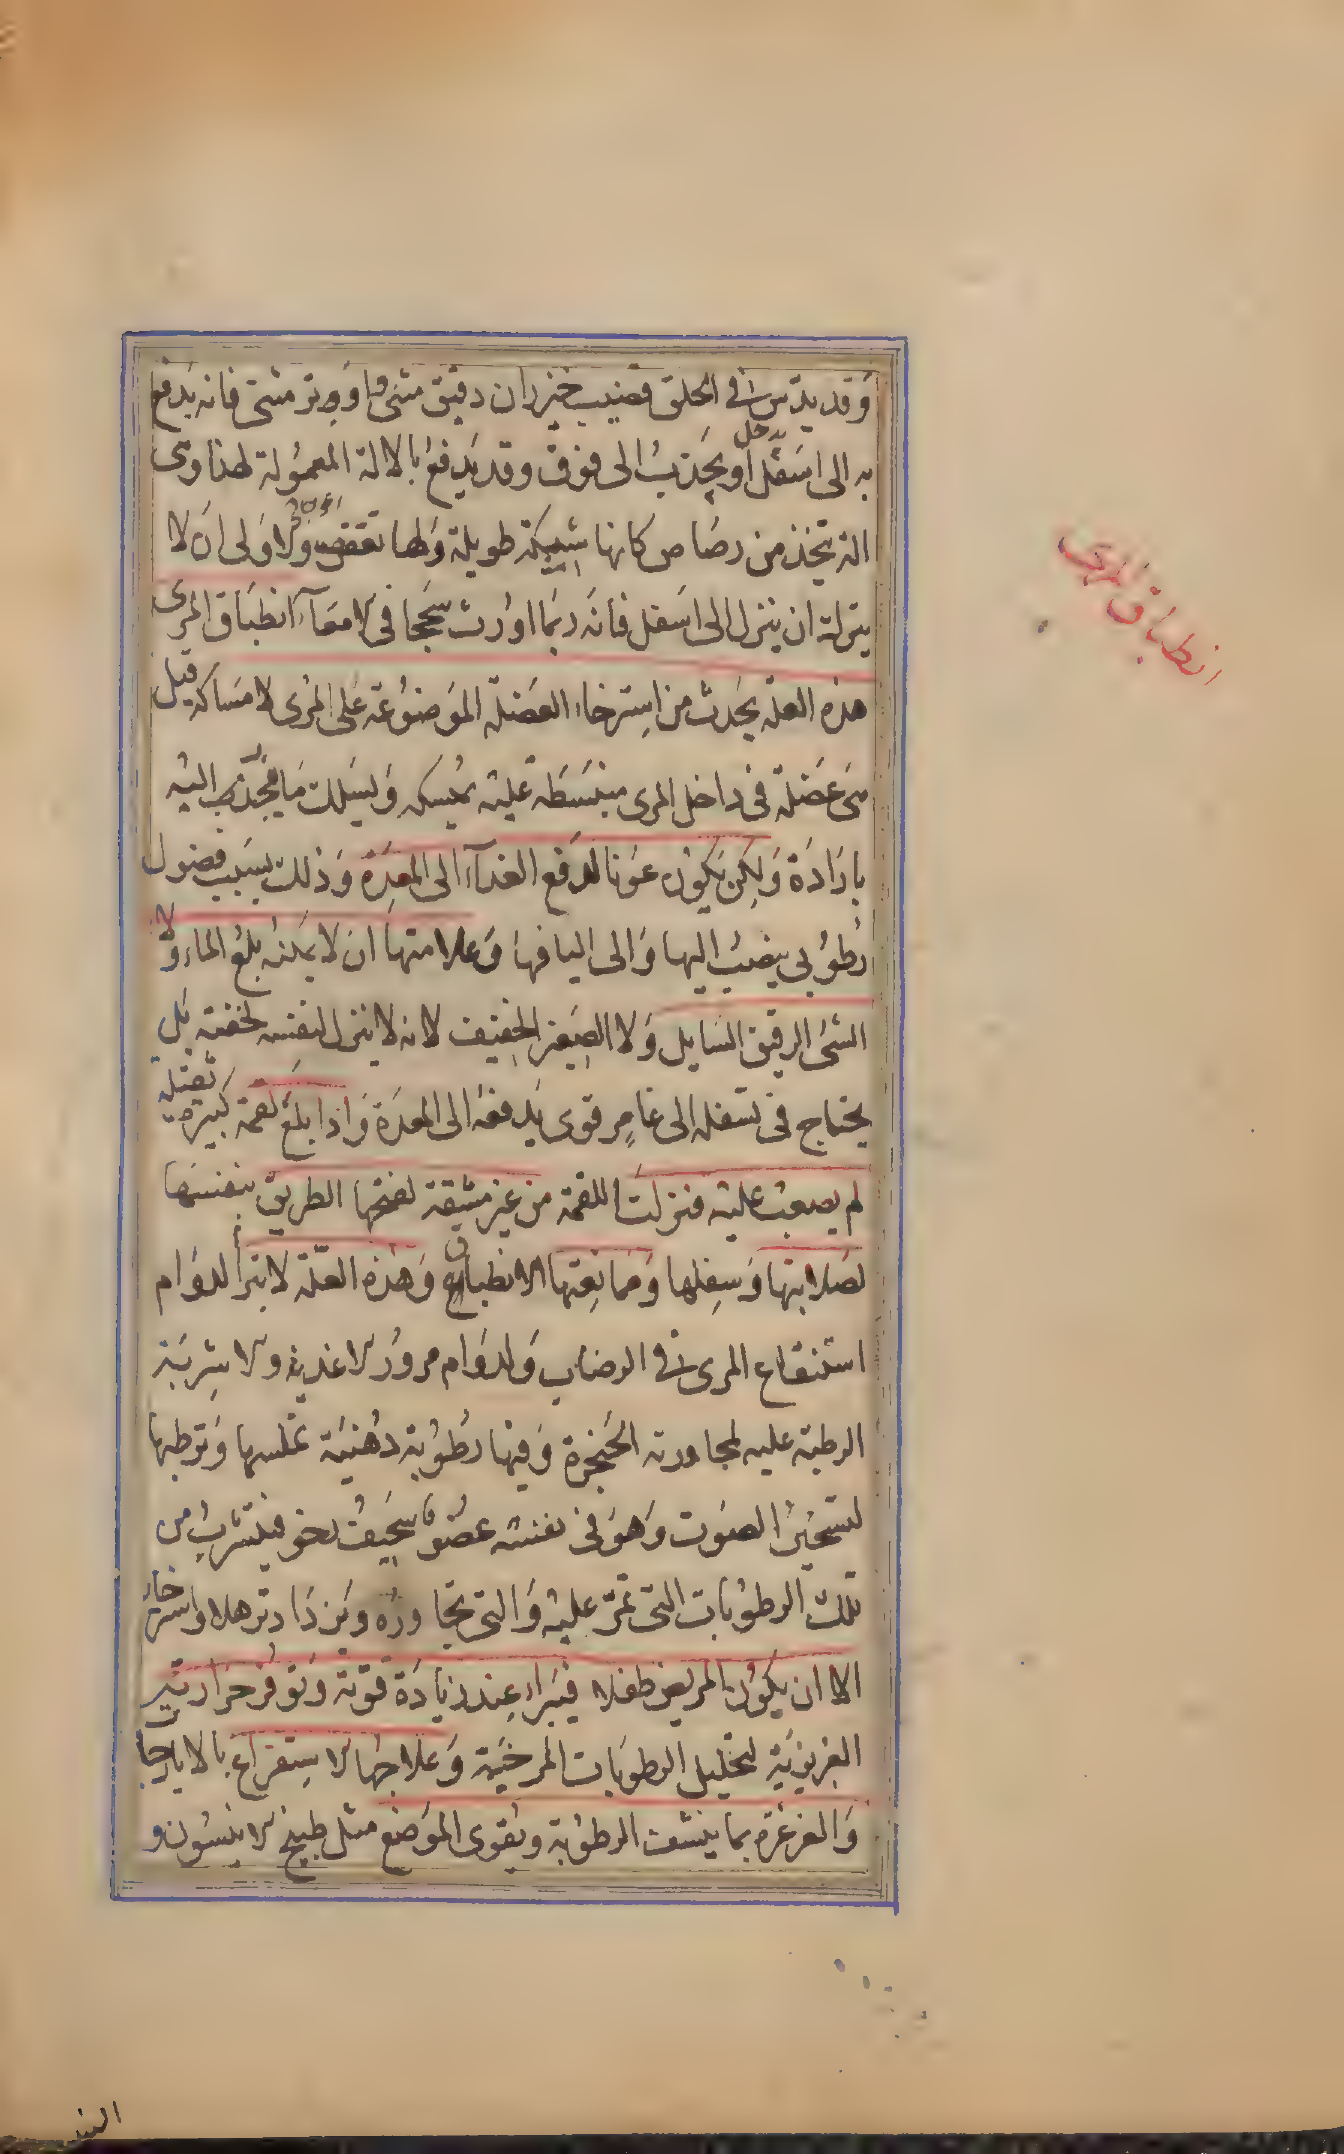 وقد يدس في الحلق قضيب خيزران دقيق مثنى او وتر مثنى فانه يدفع
به الى اسفل او يجذب الى فوق وقد يدفع بالالة المعمولة لهذا وهى
يدخل
الة تتخذ من رصاص كانها شبيكة طويلة ولها تعقف والاولى ان لا
يترك ان ينزل الى اسفل فانه ربما اورث سحجا فى الامعاء انطباق المرى
انطباق المرى
هذه العلة يحدث من استرخاء العضلة الموضوعة على المرى لامساكه قيل
هى عضلة فى داخل المرى منبسطة عليه يمسكه ويسلك ما ينجذب اليه
بارادة ولكن يكون عونا لدفع الغذاء الى المعدة وذلك بسبب فضول
رطوبى ينصب اليها والى اليافها وعلامتها ان لا يمكنه بلع الماء ولا
الشى الرقيق السايل ولا الصغير الخفيف لانه لا ينزل لنفسه لخفته بل
يحتاج فى تسفله الى غامر قوى يدفعه الى المعدة واذا بلع لقمة كبيرة ثقيلة
لم يصعب عليه فنزلت اللقمة من غير مشقة لفتحها الطريق بنفسها
لصلابتها وسفلها وممانعتها الانطباق وهذه العلة لا تبرأ لدوام
استنقاع المرى فى الرضاب ولدوام مرور الاغذية والاشربة
الرطبة عليه لمجاورته الحنجرة وفيها رطوبة دهنية تملسها وترطبها
لتحسين الصوت وهو فى نفسه عضو سخيف نحو فيتشرب من
تلك الرطوبات التى تمر عليه والتى تجاوره ويزداد ترهلا واسترخاء
الا ان يكون المريض طفلا فيبراء عند زيادة قوته وتوفر حرارته
الغريزية لتحليل الرطوبات المرخية وعلاجها الاستفراغ بالايارجات
والغرغرة بما ينشف الرطوبة ويقوى الموضع مثل طبيخ الانيسون و